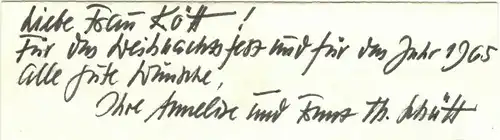 Liebe Frau Kött!
Für das Weihnachtsfest und für das Jahr 1965
alle gute Wünsche,
Ihre Annelise und Ernst Th. Schütt